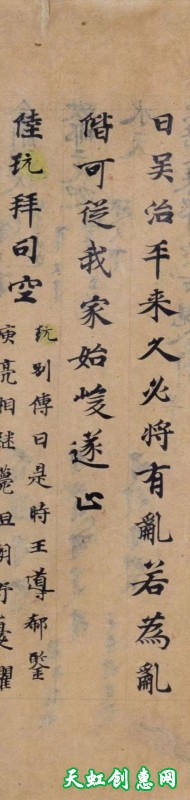 曰吴治平来久必将有亂若為亂
階可從我家始峻遂止
陸玩拜司空
玩别傳曰是時王導郗鑒
亮相继薨
天虹创惠网